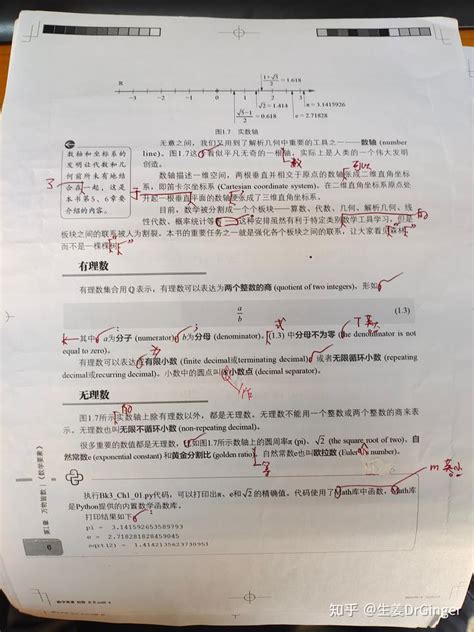 R
1+√5
2
= 1.618
-3 -2 -1 0 1 2 3
√5−1
2
= 0.618
√2 = 1.414
e = 2.71828
π = 3.1415926
图1.7 实数轴
无意之间，我们又用到了解析几何中重要的工具之一——数轴 (number
line)。图1.7这看似平凡无奇的一根轴，实际上是人类的一个伟大发明
创造。
数轴和坐标系的
发明让代数和几
何前所未有地结
合在一起，这是
本书第5、6章要
介绍的内容。
数轴描述一维空间，两根垂直并相交于原点的数轴张成二维直角坐标
系，即笛卡尔坐标系 (Cartesian coordinate system)。在二维直角坐标系原点处
升起一根垂直平面的数轴便张成了三维直角坐标系。
目前，数学被分割成一个个板块——算数、代数、几何、解析几何、线
性代数、概率统计等。这种安排虽然有利于特定类别数学工具学习，但是
板块之间的联系被人为割裂。本书的重要任务之一就是强化各个板块之间的联系，让大家看见森林，
而不是一棵棵树。
有理数
有理数集合用 Q 表示，有理数可以表达为两个整数的商 (quotient of two integers)，形如
a
b
(1.3)
其中，a为分子 (numerator)，b为分母 (denominator)。(1.3) 中分母不为零 (the denominator is not
equal to zero)。
有理数可以表达为有限小数 (finite decimal或terminating decimal) 或者无限循环小数 (repeating
decimal或recurring decimal)。小数中的圆点叫做小数点 (decimal separator)。
无理数
图1.7所示实数轴上除有理数以外，都是无理数。无理数不能用一个整数或两个整数的商来表
示。无理数也叫无限不循环小数 (non-repeating decimal)。
很多重要的数值都是无理数，如图1.7所示数轴上的圆周率π (pi)、√2 (the square root of two)、自
然常数e (exponential constant) 和黄金分割比 (golden ratio)。自然常数e也叫欧拉数 (Euler's number)。
执行Bk3_Ch1_01.py代码，可以打印出π、e和√2 的精确值。代码使用了Math库中函数，Math库
是Python提供的内置数学函数库。
打印结果如下：
pi = 3.141592653589793
e = 2.718281828459045
sqrt(2) = 1.4142135623730951
第1章 万物皆数 | 《数学要素》
6
知乎 @生姜DrGinger